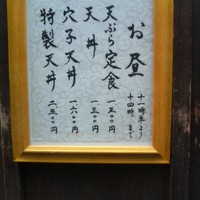 お昼
十一時半より
十四時まで
天ぷら定食 一五〇〇円
天丼 一三〇〇円
穴子天丼 一六〇〇円
特製天丼 二五〇〇円